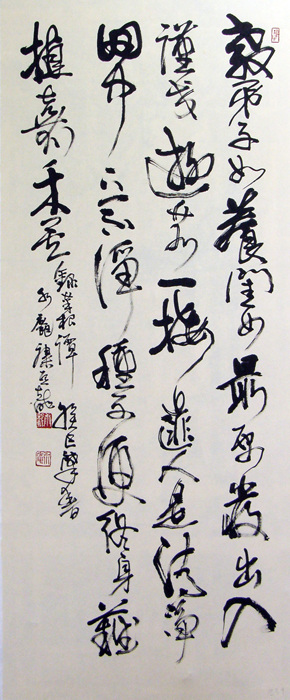 教弟子如養閨女最要嚴出入
謹交遊若一接匪人是清淨
田中下不淨種子便終身難
植嘉禾矣 錄菜根譚